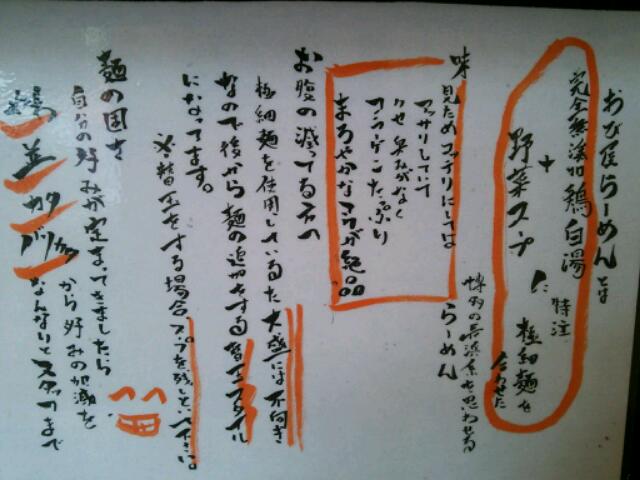 おび屋らーめんとは
完全無添加鶏白湯
+
野菜スープ に 特注 極細麺を
合わせた
博多の長浜系を思わせる
らーめん
味
見ためコッテリにしては
アッサリしていて
クセ 臭みがなく
コラーゲンたっぷり
まろやかなコクが絶品
お腹の減ってる方へ
極細麺を使用しているため 大盛には不向き
なので後から麺の追加をする替玉スタイル
になってます。
※替玉をする場合、スープを残しといて下さい。
麺の固さ
自分の好みが定まってきましたら
並 カタ バリカタ から好みの加減を
なんなりとスタッフまで